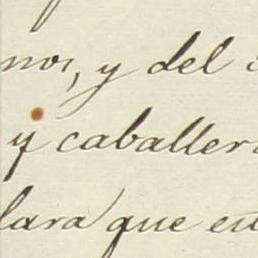 nos, y del
y caballer
lara que en